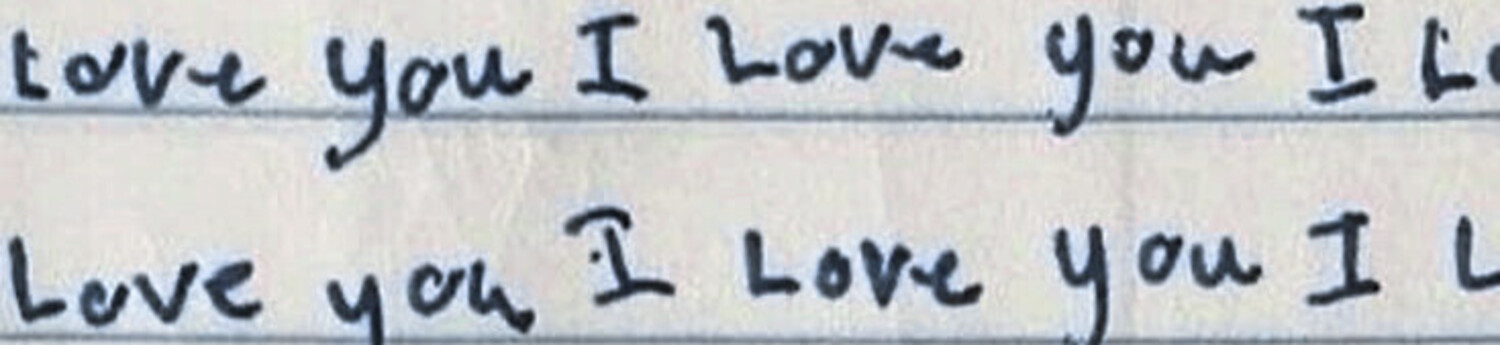 Love you I Love you I Lo
Love you I Love you I L